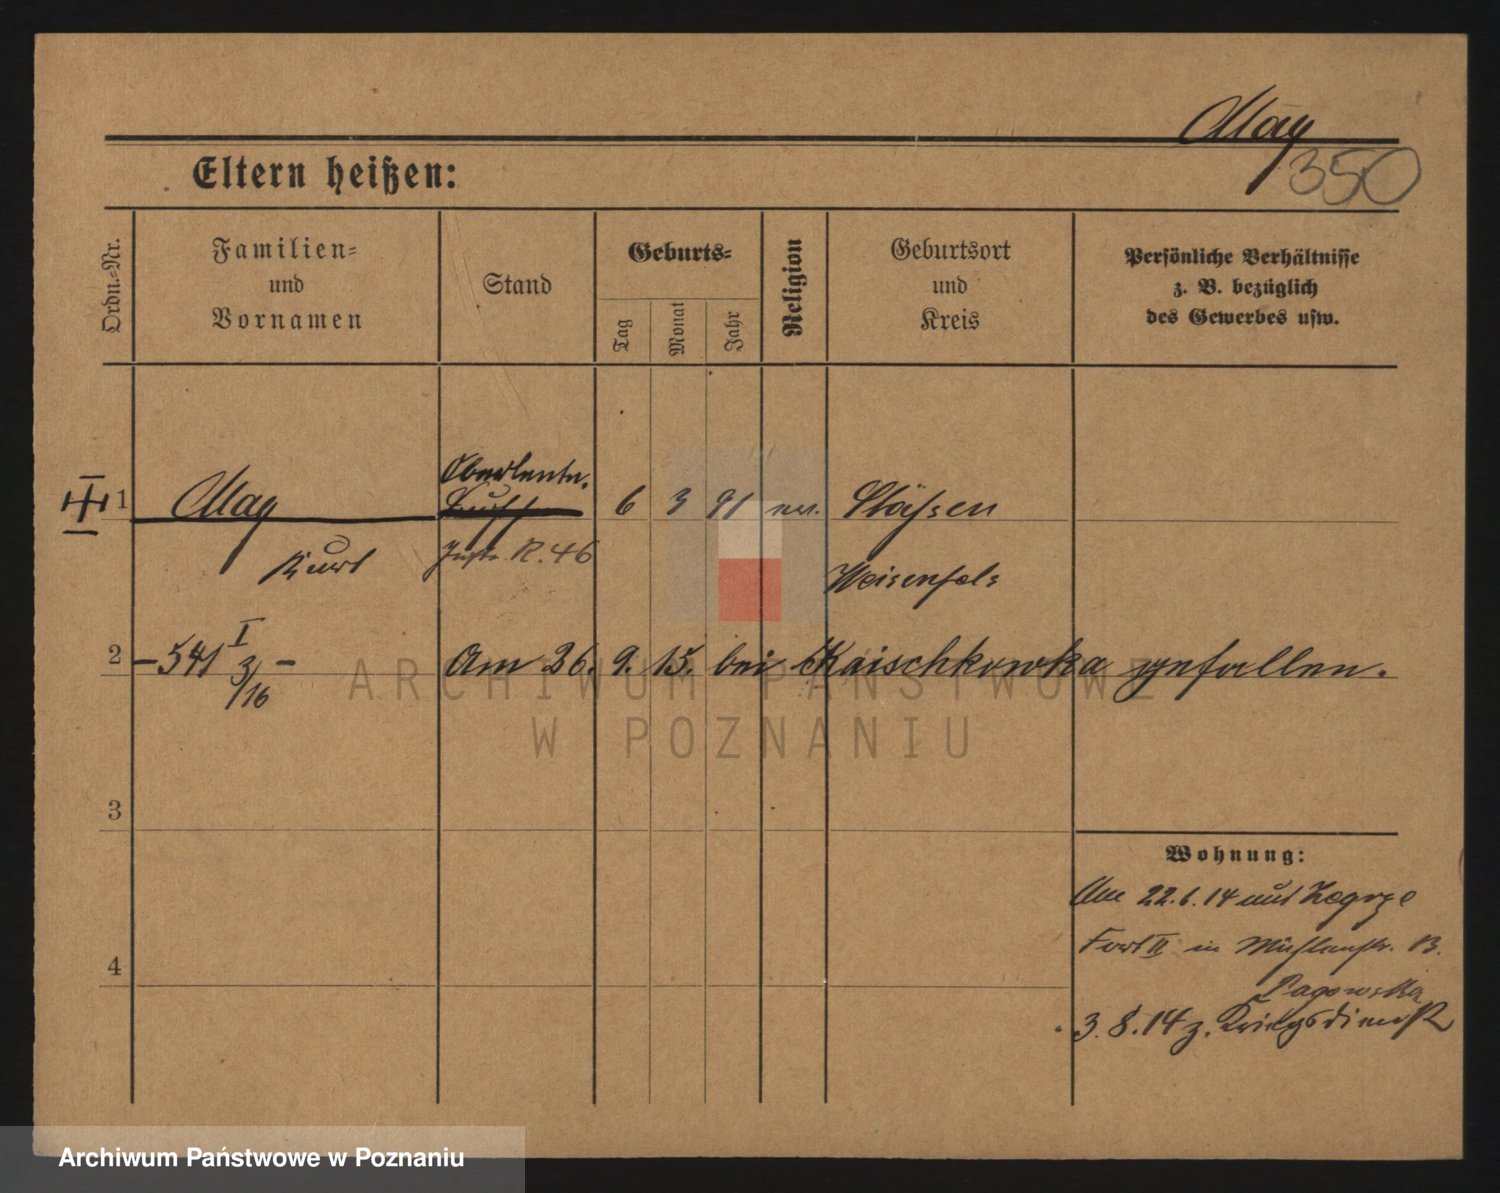 May
350
Eltern heißen:
Ordn.-Nr.
Familien- und Vornamen
Stand
Geburts-
Tag
Monat
Jahr
Religion
Geburtsort und Kreis
Persönliche Verhältnisse z. B. bezüglich des Gewerbes usw.
1
May
Oberleutn.
6 3 91
Stößen
Kurt
Inftr. R. 46
Weisenfels
2
-541 I 3/16 -
Am 26. 9. 15. bei Kaischkowka gefallen.
3
Wohnung:
22.6.14 auf Zegrze
Fort II in Mühlenstr. 13.
4
Pagowska
3.8.14 z. Kriegsdienst
ARCHIWUM PAŃSTWOWE
W POZNANIU
Archiwum Państwowe w Poznaniu